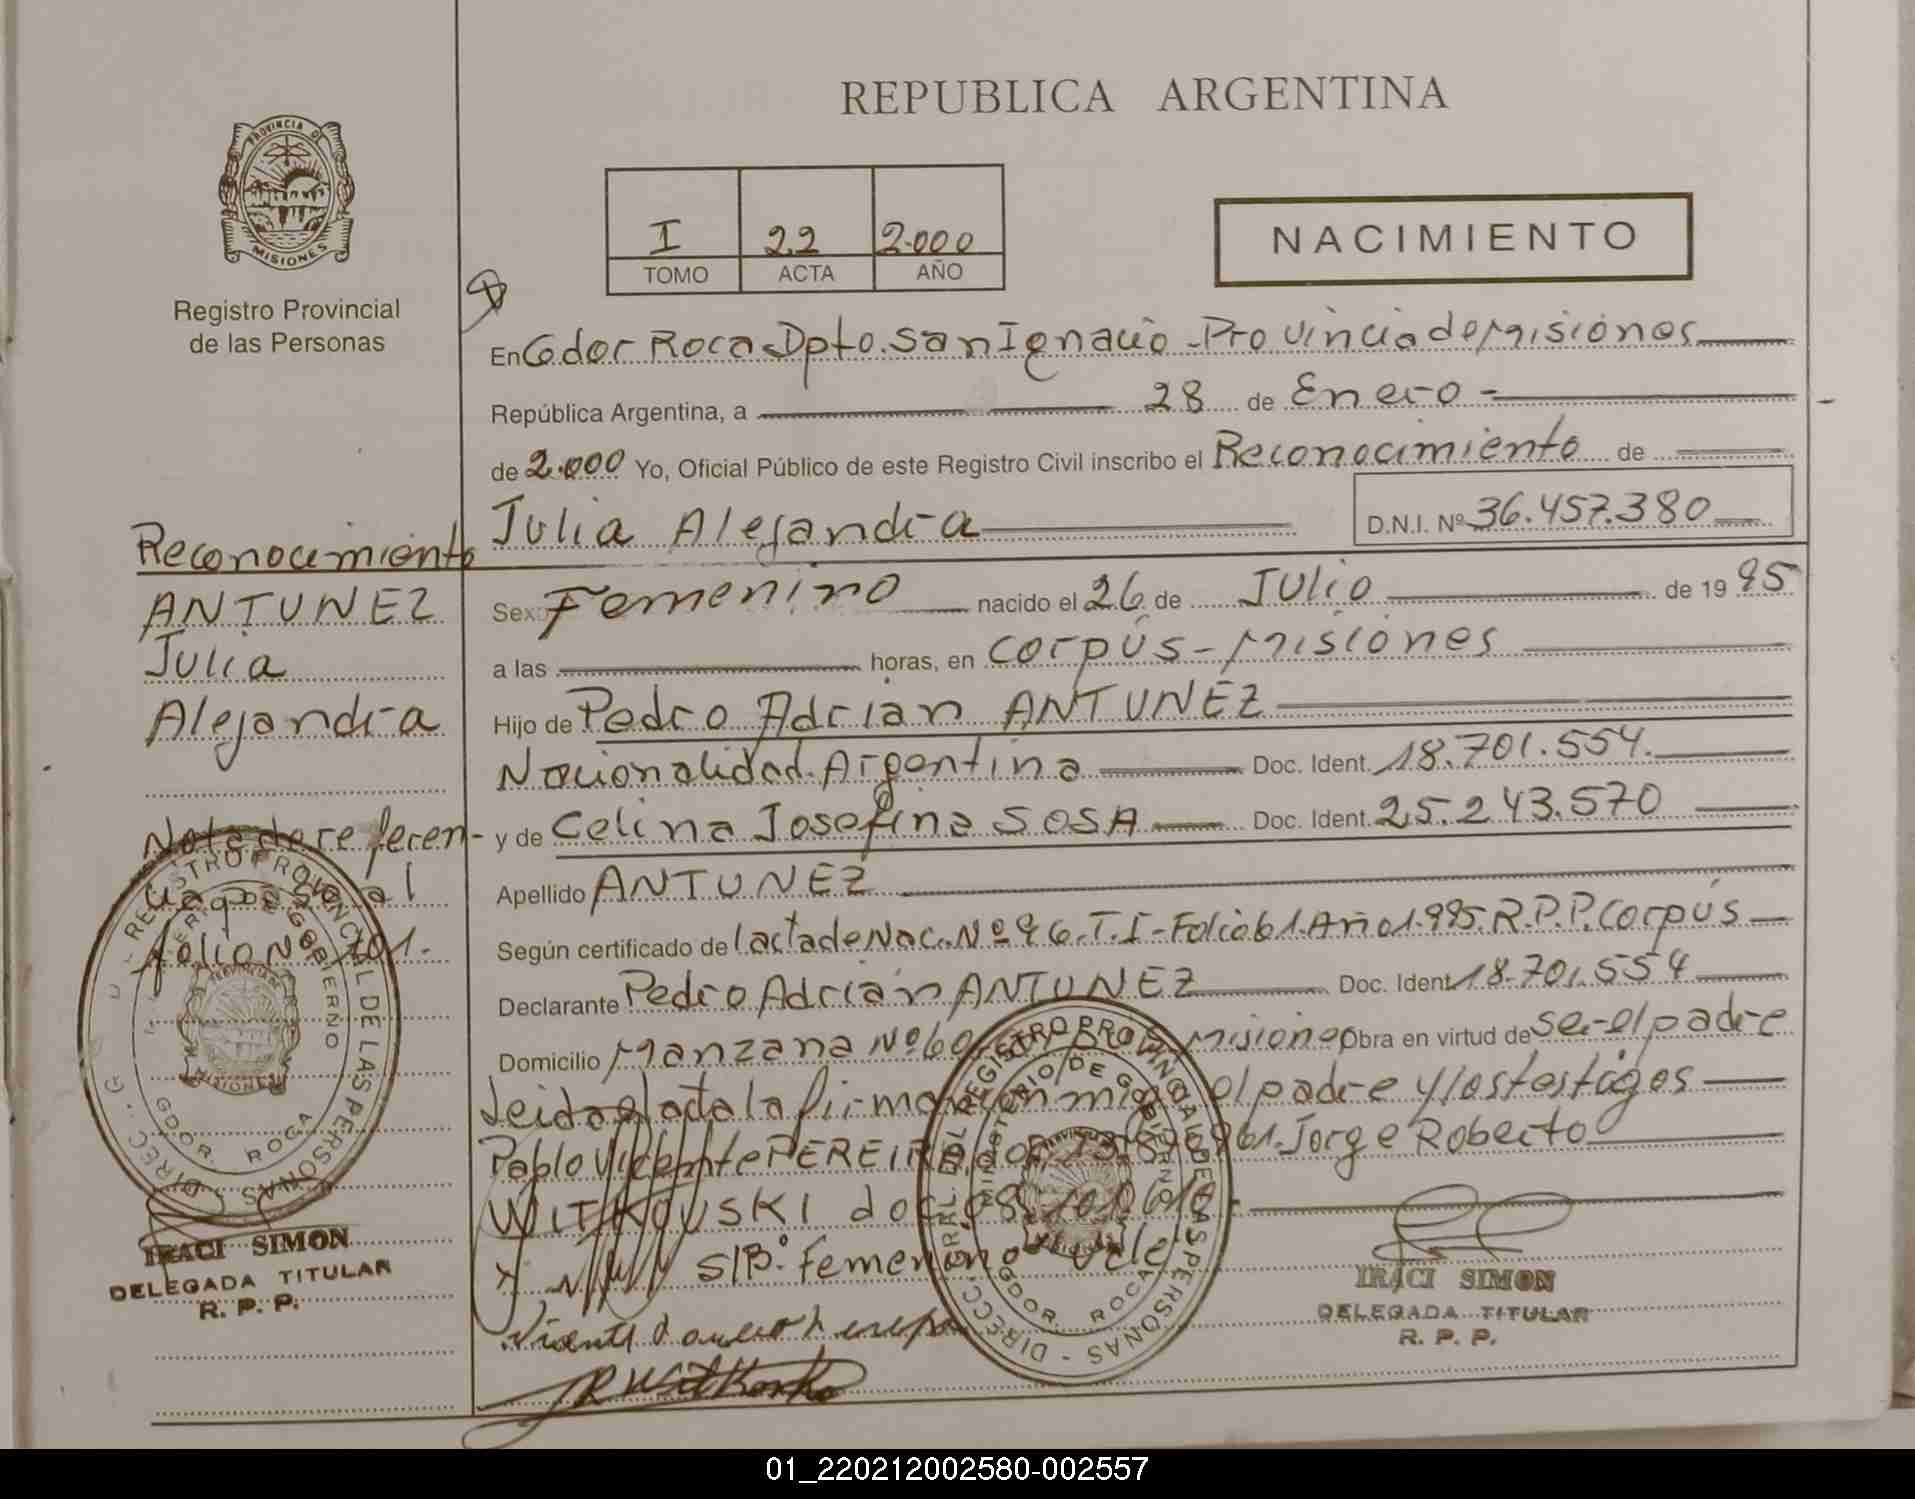 REPUBLICA ARGENTINA
PROVINCIA DE MISIONES
Registro Provincial
de las Personas
I 22 2.000
TOMO ACTA AÑO
NACIMIENTO
En Gdor Roca Dpto. San Ignacio - Provincia de Misiones
República Argentina, a 28 de Enero -
de 2.000 Yo, Oficial Público de este Registro Civil inscribo el Reconocimiento de
Julia Alejandra D.N.I. Nº 36.457.380
Sexo Femenino nacido el 26 de Julio de 1995
a las horas, en Corpús - Misiones
Hijo de Pedro Adrián ANTUNEZ
Nacionalidad Argentina Doc. Ident. 18.701.554.
y de Celina Josefina SOSA Doc. Ident. 25.243.570
Apellido ANTUNEZ
Según certificado de l acta de Nac. Nº 96. T. I - Folio 61. Año 1.995. R.P.P. Corpús
Declarante Pedro Adrián ANTUNEZ Doc. Ident. 18.701.554
Domicilio Manzana Nº 60 Misiones Obra en virtud de ser el padre
Leida el acta la firman con migo el padre y los testigos
Pablo Vicente PEREIRA doc. 961. Jorge Roberto
WITKOUSKI doc
S/B. Femenino Vale
Reconocimiento
ANTUNEZ
Julia
Alejandra
Nota de referen-
cia pasa al
folio Nº 101.
DIRECC. GRAL DEL REGISTRO PROVINCIAL DE LAS PERSONAS
MINISTERIO DE GOBIERNO
GDOR. ROCA
IRACI SIMON
DELEGADA TITULAR
R. P. P.
DIRECC. GRAL DEL REGISTRO PROVINCIAL DE LAS PERSONAS
MINISTERIO DE GOBIERNO
GDOR. ROCA
IRACI SIMON
DELEGADA TITULAR
R. P. P.
01_220212002580-002557